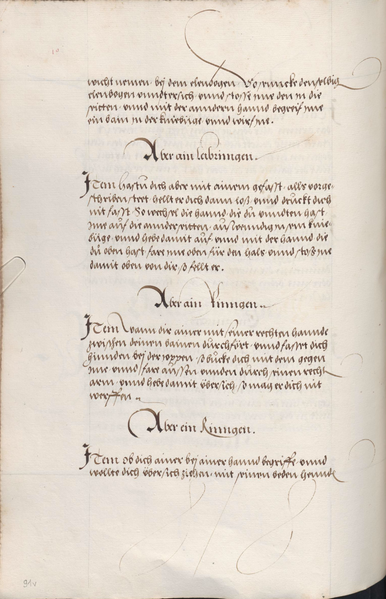 nicht nemen bey dem elenbogen So rucke denselbig
elenbogen unndersich unnd stosse ine den in die
seitten unnd mit der anndern hannd begreif ine
ein bain in der kniebüge unnd wirf ine.
Aber ain leibringen.
Item hastu dich aber mit ainem gefast alls vorge-
schriben steet hellt er dich dann los unnd druckt dich
nit fasst So wechsel die hannd die du unndten hast
ime auf die annder seitten auswenndig in ein knie-
büge unnd heb damit auf unnd mit der hannd die
du oben hast fare ime oben für den hals unnd stos ine
damit oben von dir so fellt er.
Aber ain Ringen..
Item Wann dir ainer mit seiner rechten hannde
zwischen deinen bainen durchfert unnd fasst dich
hinnden bey der joppen so bucke dich mit dem gegen
ime unnd fare aussen unnden durch einen recht
arm unnd heb damit übersich so mag er dich nit
werffen..
Aber ein Ringen.
Item ob dich ainer bey ainer hannd begriffe unnd
wollte dich über sich ziehen mit seinen beden hennde
91v